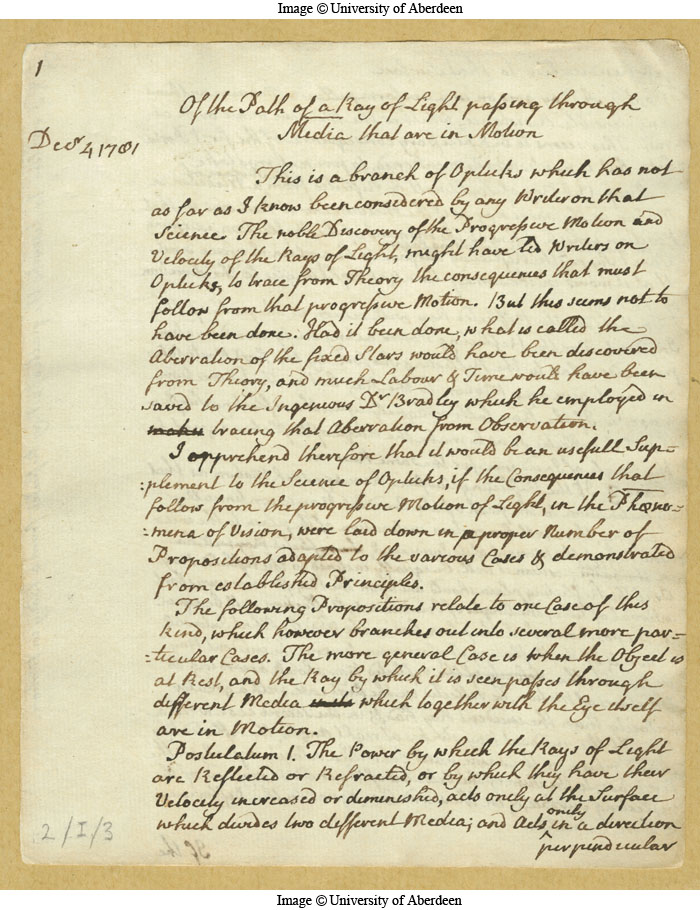 Image © University of Aberdeen
1
Of the Path of a Ray of Light passing through
Media that are in Motion
Decr 4 1781
This is a branch of Opticks which has not
as far as I know been considered by any Writer on that
Science. The noble Discovery of the Progressive Motion and
Velocity of the Rays of Light, might have led Writers on
Opticks, to trace from Theory the consequences that must
follow from that progressive Motion. But this seems not to
have been done. Had it been done, what is called the
Aberration of the fixed Stars would have been discovered
from Theory, and much Labour & Time would have been
saved to the Ingenious Dr Bradley which he employed in
tracing that Aberration from Observation.
I apprehend therefore that it would be an usefull Sup=
:plement to the Science of Opticks, if the Consequences that
follow from the progressive Motion of Light, in the Phæno=
:mena of Vision, were laid down in a proper Number of
Propositions adapted to the various Cases & demonstrated
from established Principles.
The following Propositions relate to one Case of this
kind, which however branches out into several more par=
:ticular Cases. The more general Case is when the Object is
at Rest, and the Ray by which it is seen passes through
different Media which together with the Eye itself
are in Motion.
Postulatum 1. The Power by which the Rays of Light
are Reflected or Refracted, or by which they have their
Velocity increased or diminished, acts onely at the Surface
which divides two different Media; and Acts onely in a direction
perpendicular
2/I/3
Image © University of Aberdeen